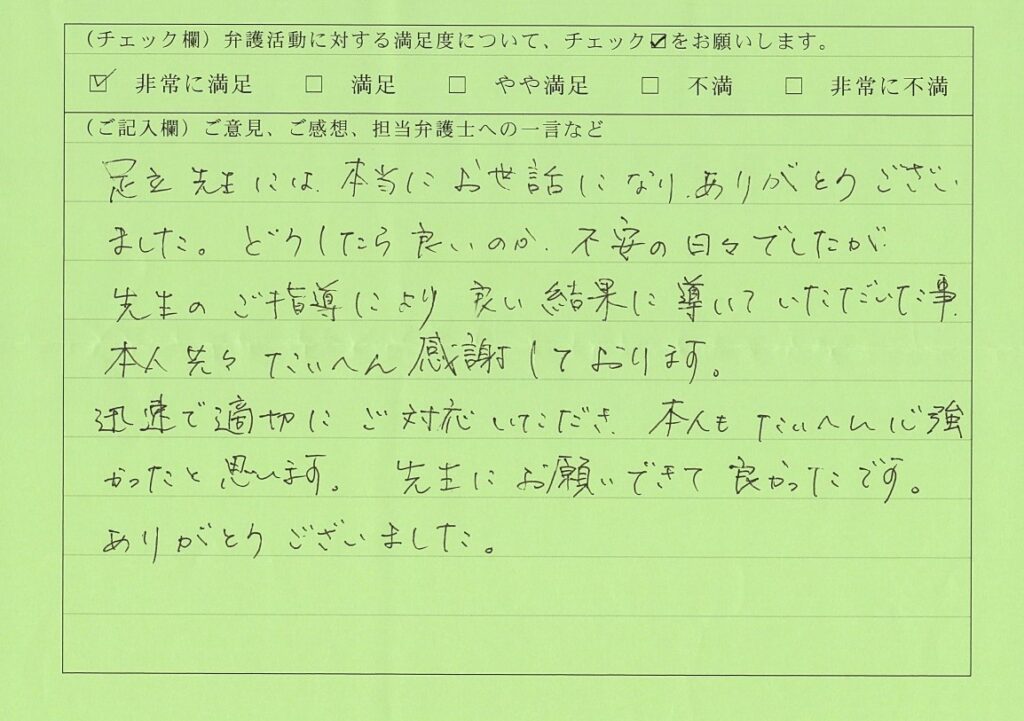 （チェック欄）弁護活動に対する満足度について、チェック☑をお願いします。
☑ 非常に満足 □ 満足 □ やや満足 □ 不満 □ 非常に不満
（ご記入欄）ご意見、ご感想、担当弁護士への一言など
足立先生には、本当にお世話になり、ありがとうござい
ました。どうしたら良いのか、不安の日々でしたが
先生のご指導により良い結果に導いていただいた事、
本人共々たいへん感謝しております。
迅速で適切にご対応いただき、本人もたいへん心強
かったと思います。先生にお願いできて良かったです。
ありがとうございました。